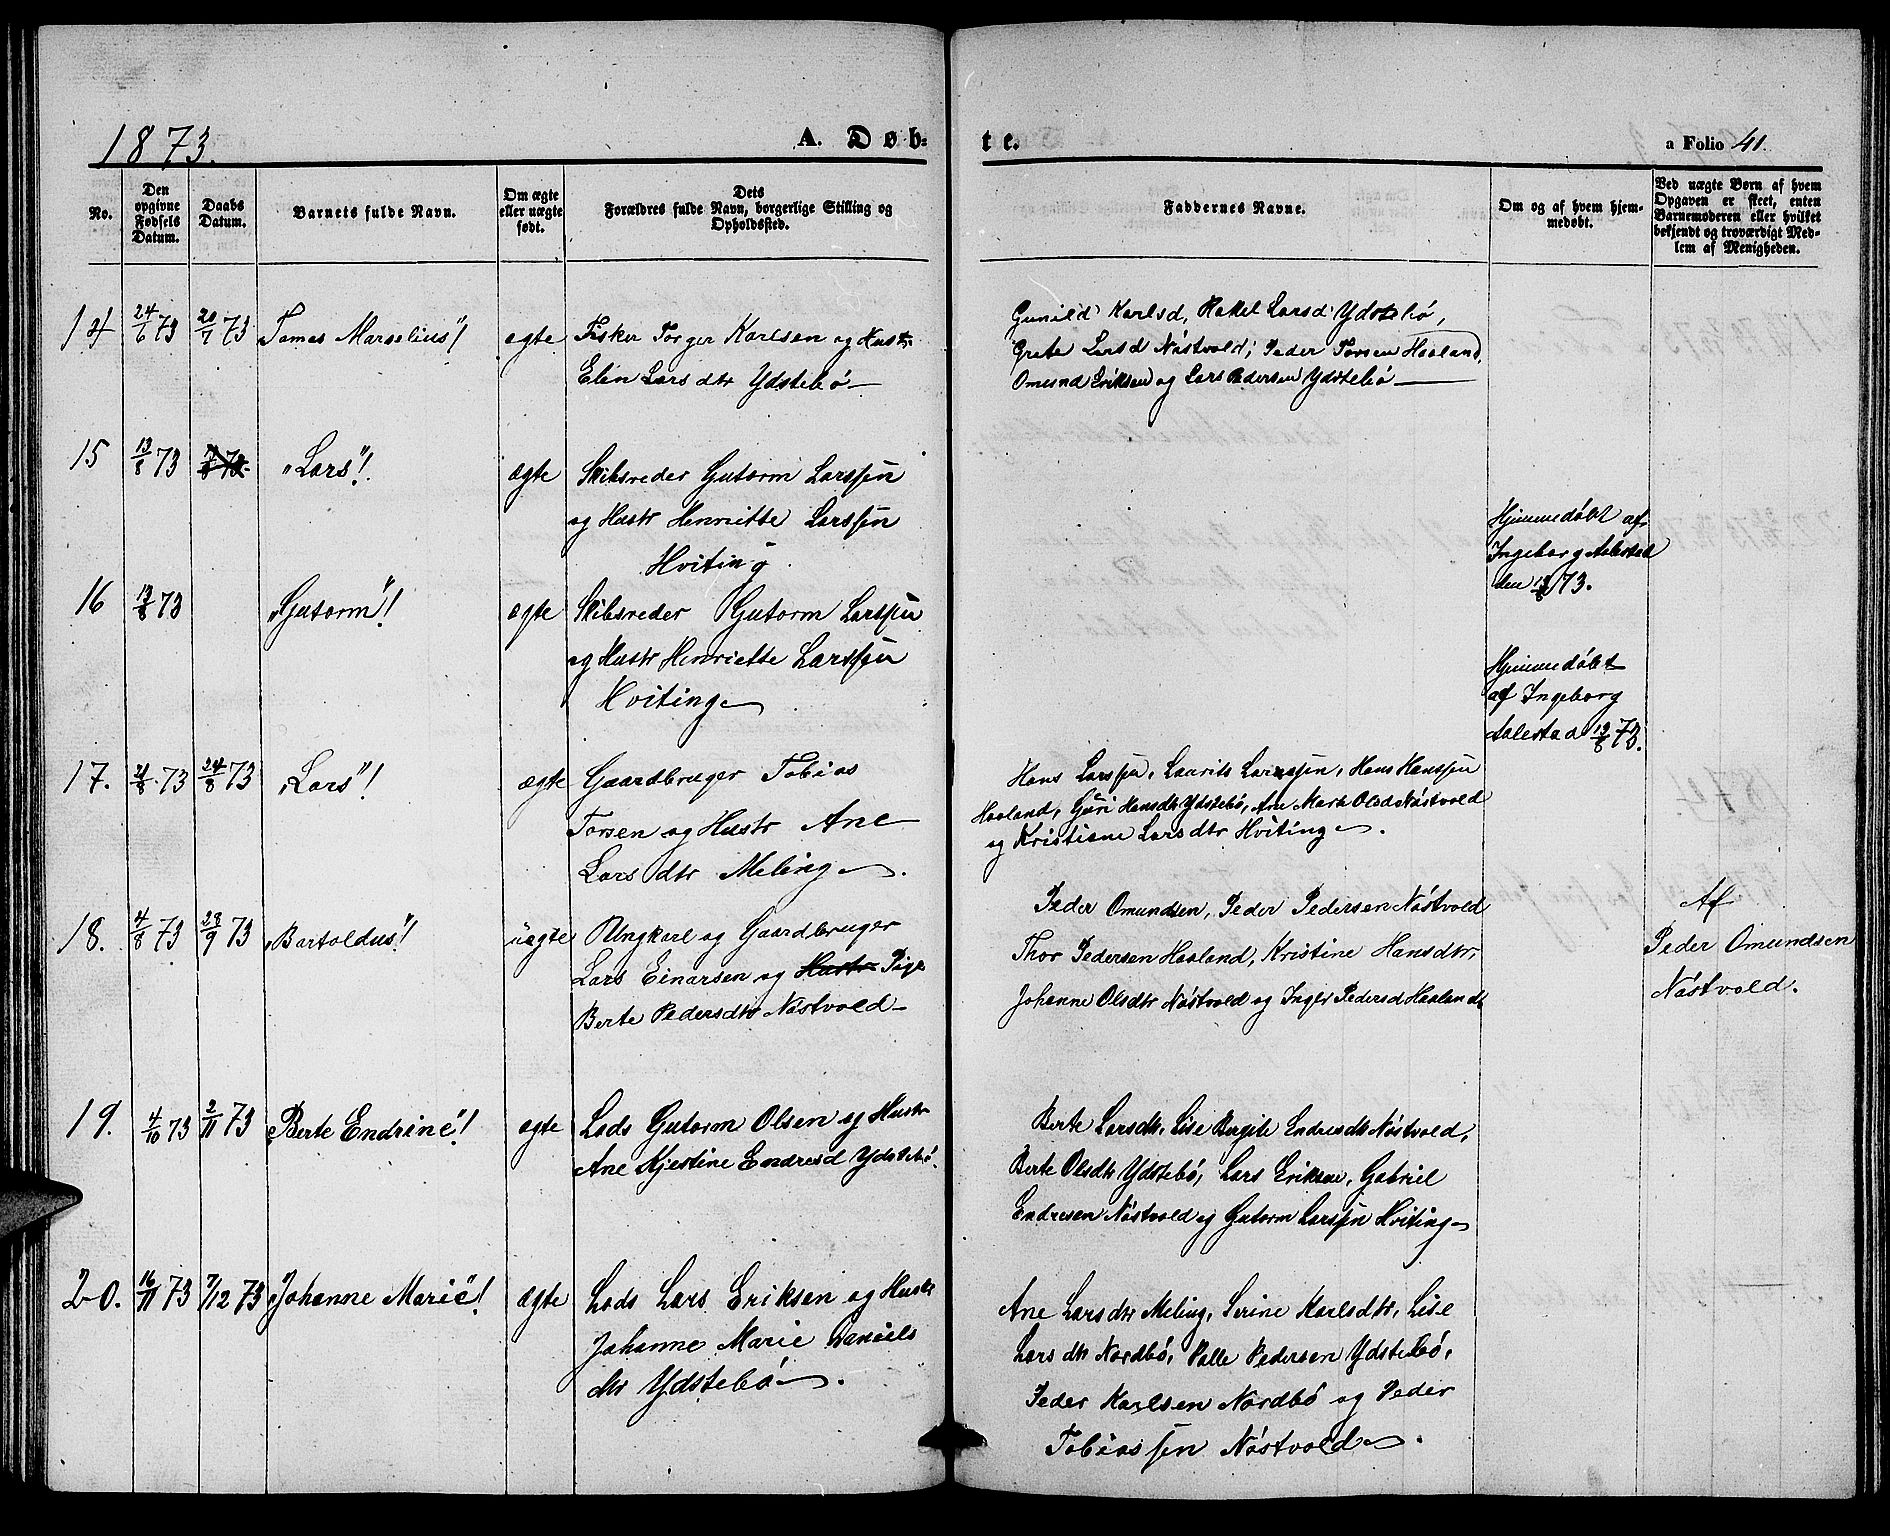 1873.
A. Døb-
te.
a Folio 41.
No.
Den opgivne Fødsels Datum.
Daabs Datum.
Barnets fulde Navn.
Om ægte eller uægte født.
Dets Forældres fulde Navn, borgerlige Stilling og Opholdssted.
Faddernes Navne.
Om og af hvem hjemmedøbt.
Ved uægte Børn af hvem Opgaven er skeet, enten Barnemoderen eller hvilket bekjendt og troværdigt Medlem af Menigheden.
14 24/6 73 20/7 73 Tomas Marselius"! ægte Fisker Torger Karlsen og Hustr
Elen Lars dtr Ydstebö
Gunild Karlsd, Rakel Larsd Ydstebö,
Grete Larsd Nöstvold, Peder Torsen Haaland,
Omund Eriksen og Lars Pedersen Ydstebö
15 13/8 73 „Lars"! ægte Skibsreder Gutorm Larssen
og Hustr Henriette Larssen
Hviting
Hjemmedöbt af
Ingeborg Aalestad
den 13/8 73.
16 13/8 73 „Gutorm"! ægte Skibsreder Gutorm Larssen
og Hustr Henriette Larssen
Hviting
Hjemmedöbt
af Ingeborg
Aalestad 13/8 73.
17. /8 73 24/8 73 „Lars"! ægte Gaardbruger Tobias
Torsen og Hustr Ane
Lars dtr Meling.
Hans Larssen, Laurits Larssen, Hans Hanssen
Haaland, Guri Hansdtr Ydstebö, Ane Marte Olsd Nöstvold
og Kristiane Lars dtr Hviting.
18. 4/8 73 28/9 73 „Bartoldus"! uægte Ungkarl og Gaardbruger
Lars Einarsen og Hustr Pige
Berte Pedersdtr Nöstvold
Peder Omundsen, Peder Pedersen Nöstvold
Thor Pedersen Haaland, Kristine Hansdtr,
Johanne Olsdtr Nöstvold og Inger Pedersd Haaland
Af
Peder Omundsen
Nöstvold.
19. 4/10 73 2/11 73 „Berte Endrine"! ægte Lods Gutorm Olsen og Hustr
Ane Kjestine Endresd Ydstebö.
Berte Larsdtr, Lise Bergite Endresdtr Nöstvold,
Berte Olsdtr Ydstebö, Lars Eriksen, Gabriel
Endresen Nöstvold og Gutorm Larssen Hviting
20. 16/11 73 7/12 73 „Johanne Marie"! ægte Lods Lars Eriksen og Hustr
Johanne Marie Daniels
dtr Ydstebö.
Ane Lars dtr Meling, Serine Karlsdtr, Lise
Lars dtr Nordbö, Palle Pedersen Ydstebö,
Peder Karlsen Nordbö og Peder
Tobiassen Nöstvold.